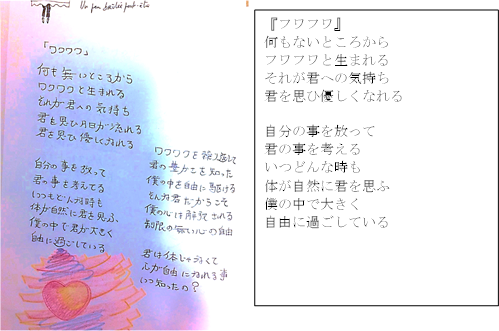 Un peu peut-être
「ワクワク」
何も無いところから
ワクワクと生まれる
それが君への気持ち
君を思ひ月日が流れる
君を思ひ優しくなれる
自分の事を放って
君の事を考えてる
いつもどんな時も
体が自然に君を思ふ
僕の中で君が大きく
自由に過ごしている
ワクワクを繰り返して
君の豊かさを知った
僕の中を自由に駆ける
そんな君だからこそ
僕の心は解放される
制限の無い心の自由
君は体じゃなくて
心が自由になれる事
いつ知ったの？
『フワフワ』
何もないところから
フワフワと生まれる
それが君への気持ち
君を思ひ優しくなれる
自分の事を放って
君の事を考える
いつどんな時も
体が自然に君を思ふ
僕の中で大きく
自由に過ごしている